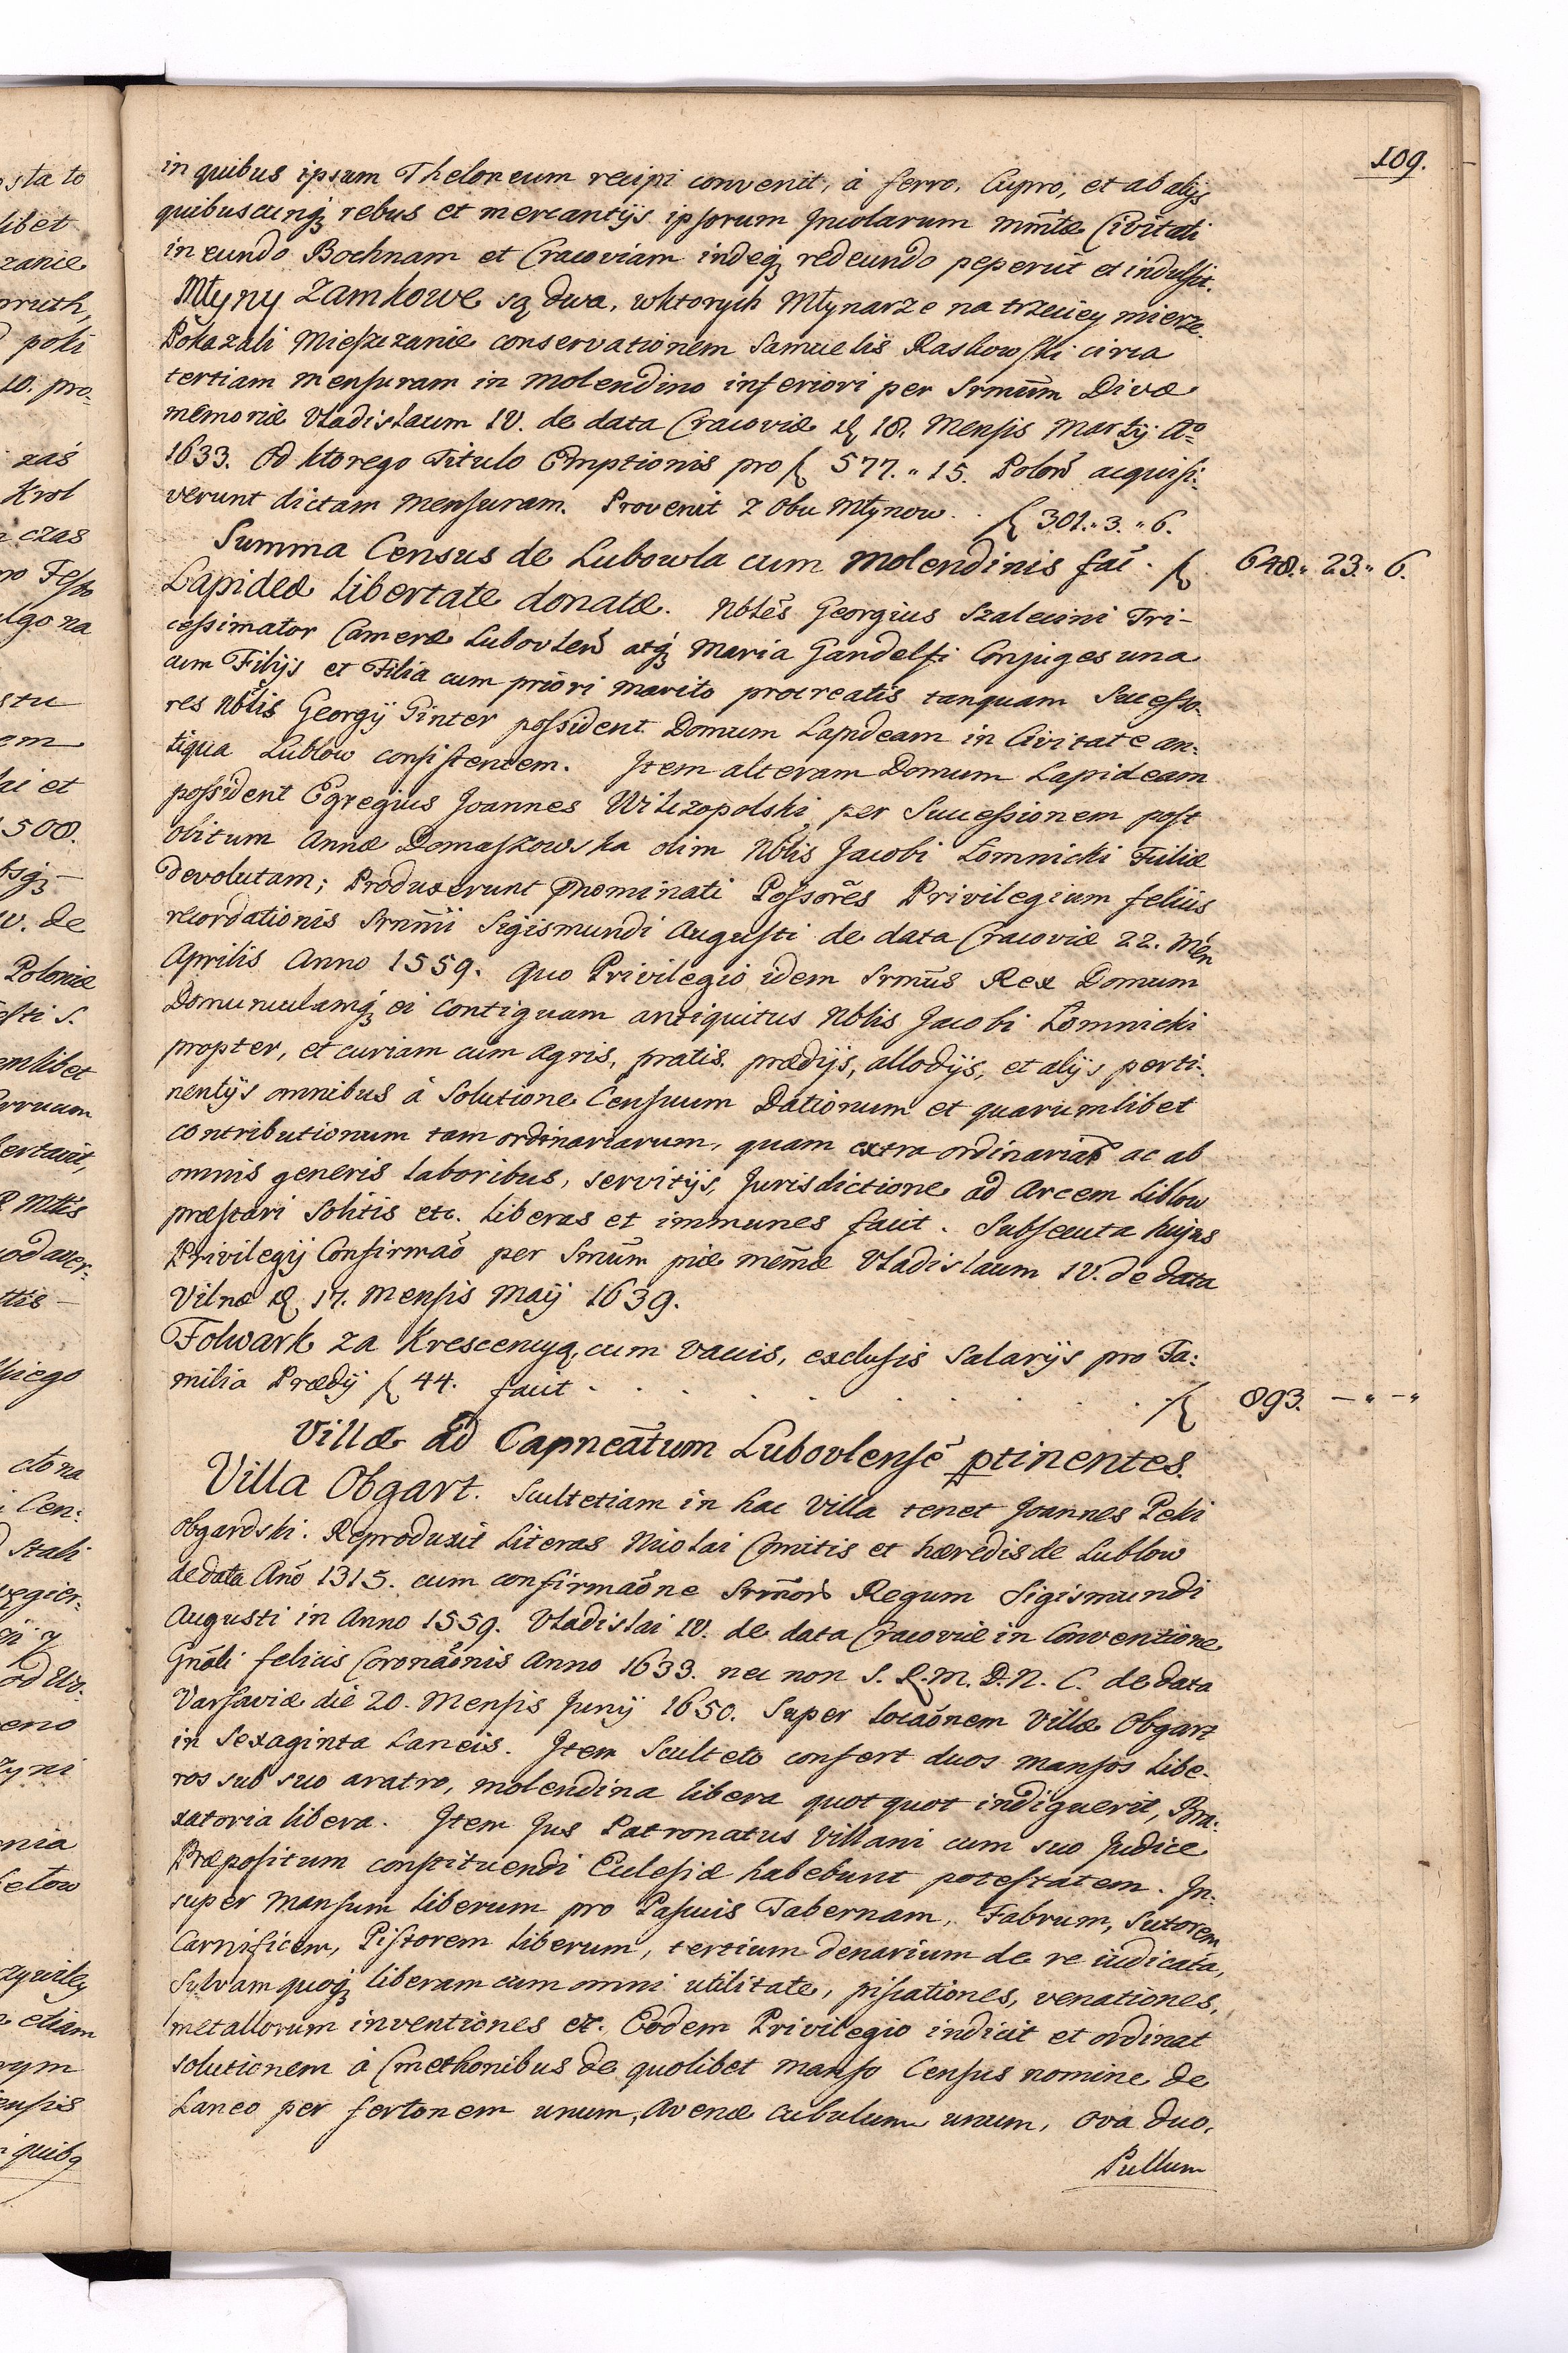 109.
in quibus ipsum Theloneum recipi convenit, à ferro, Cupro, et ab alijs
quibuscunq; rebus et mercantijs ipsorum Incolarum mm̃tæ Civitati
in eundo Bochnam et Cracoviam indeq; redeundo peperit et indulsit.
Młyny Zamkowe są dwa, wktorych Młynarze na trzeciey mierze.
Pokazali Mieszczanie conservationem Samuelis Raskowski circa
tertiam mensuram in molendino inferiori per Srmũm Divæ
memoriæ Vladislaum IV. de data Cracoviæ d. 18. Mensis Martij Aº
1633. Od ktorego Titulo Emptionis pro f 577." 15. Polon̄ acquisi:
verunt dictam mensuram. Provenit z obu Młynow. . f 301." 3." 6.
Summa Census de Lubowla cum molendinis faĩ . f 648." 23." 6.
Lapideæ libertate donatæ. Nbles̃ Georgius Szalewini Tri-
cessimator Cameræ Lubovlen̄ atq; Maria Gandelfi Conjuges una
cum Filijs et Filia cum priori marito procreatis tanquam Successo-
res Nbl̃is Georgij Ginter possident Domum Lapideam in Civitate an:
tiqua Lublow consistentem. Item alteram Domum Lapideam
possident Egregius Joannes Wilczopolski, per Successionem post
obitum Annæ Domaszowska olim Nbl̃is Jacobi Łomnicki Filiæ
devolutam; Produxerunt p̃nominati Possorẽs Privilegium felicis
recordationis Srnm̃i Sigismundi Augusti de data Cracoviæ 22. Mẽn
Aprilis Anno 1559. quo Privilegio idem Srmũs Rex Domum
Domunculamq; ei contiguam antiquitus Nblis Jacobi Łomnicki
propter, et curiam cum agris, pratis. prædijs, allodijs, et alijs perti:
nentijs omnibus à Solutione Censuum Dationum et quarumlibet
contributionum tam ordinariarum, quam extra ordinariar̃ ac ab
omnis generis laboribus, servitijs, Jurisdictione ad Arcem Liblow
præstari Solitis etc. liberas et immunes facit. Subsecuta hujus
Privilegij Confirmaõ per Smũm piæ mem̃æ Vladislaum IV. de data
Vilnæ d. 17. Mensis Maij 1639.
Folwark za Krescencyą, cum vaccis, exclusis Salarijs pro Fa:
milia Prædij f 44. facit . . . . . . . . . f 893. — " — "
Villæ ad Capneãtum Lubovlensẽ ptinentes.
Villa Obgart. Scultetiam in hac Villa tenet Joannes Peki
Obgardski. Reproduxit Literas Nicolai Comitis et hæredis de Lublow
de data Anõ 1315. cum confirmaõne Srmor̃ Regum Sigismundi
Augusti in Anno 1559. Vladislai IV. de data Cracoviæ in Conventione
Gnãli felicis Coronaõnis Anno 1633. nec non S. R. M. D. N. C. de data
Varsaviæ die 20. Mensis Junij 1650. Super locaõnem Villæ Obgart
in Sexaginta Laneis. Item Sculteto confert duos mansos libe-
ros sub suo aratro, molendina libera quotquot indiguerit, Bra:
xatoria libera. Item Jus Patronatus Villani cum suo Judice
Præpositum constituendi Ecclesiæ habebunt potestatem. In:
super Mansum liberum pro Pascuis Tabernam, Fabrum, Sutorem
Carnificem, Pistorem liberum, tertium denarium de re iudicata,
Sylvam quoq; liberam cum omni utilitate, piscationes, venationes,
metallorum inventiones etc. Eodem Privilegio indicit et ordinat
solutionem à Cmethonibus de quolibet manso Census nomine de
Laneo per fertonem unum, Avenæ cubulum unum, ova duo,
Pullum